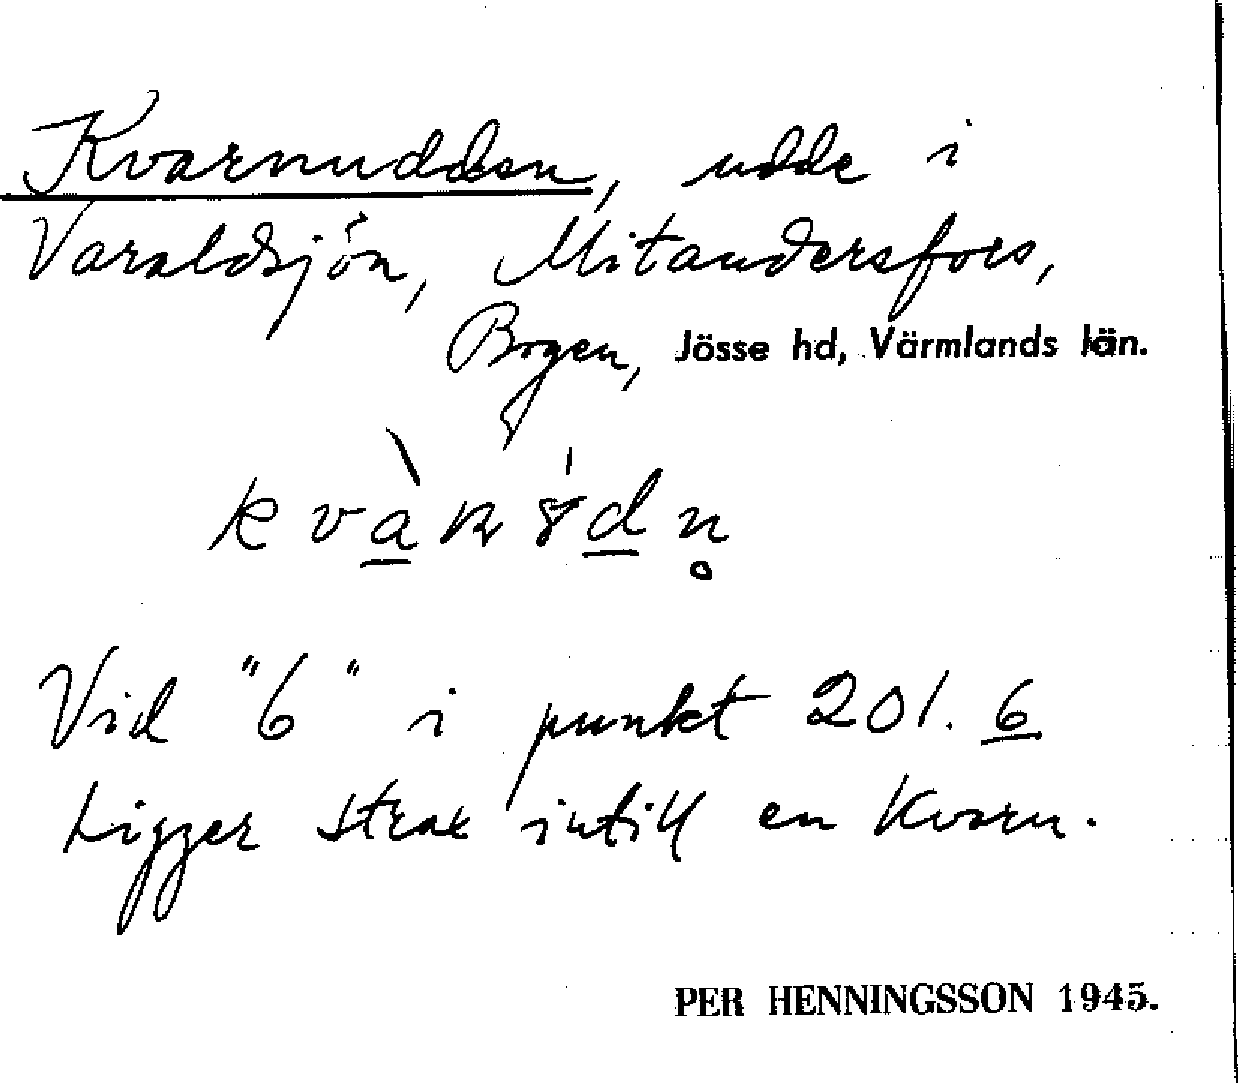 Kvarnudden, udde i
Varaldsjön, Mitandersfors,
Bogen, Jösse hd, Värmlands län.
Vid "6" i punkt 201.6
Ligger strax intill en kvarn.
PER HENNINGSSON 1945.